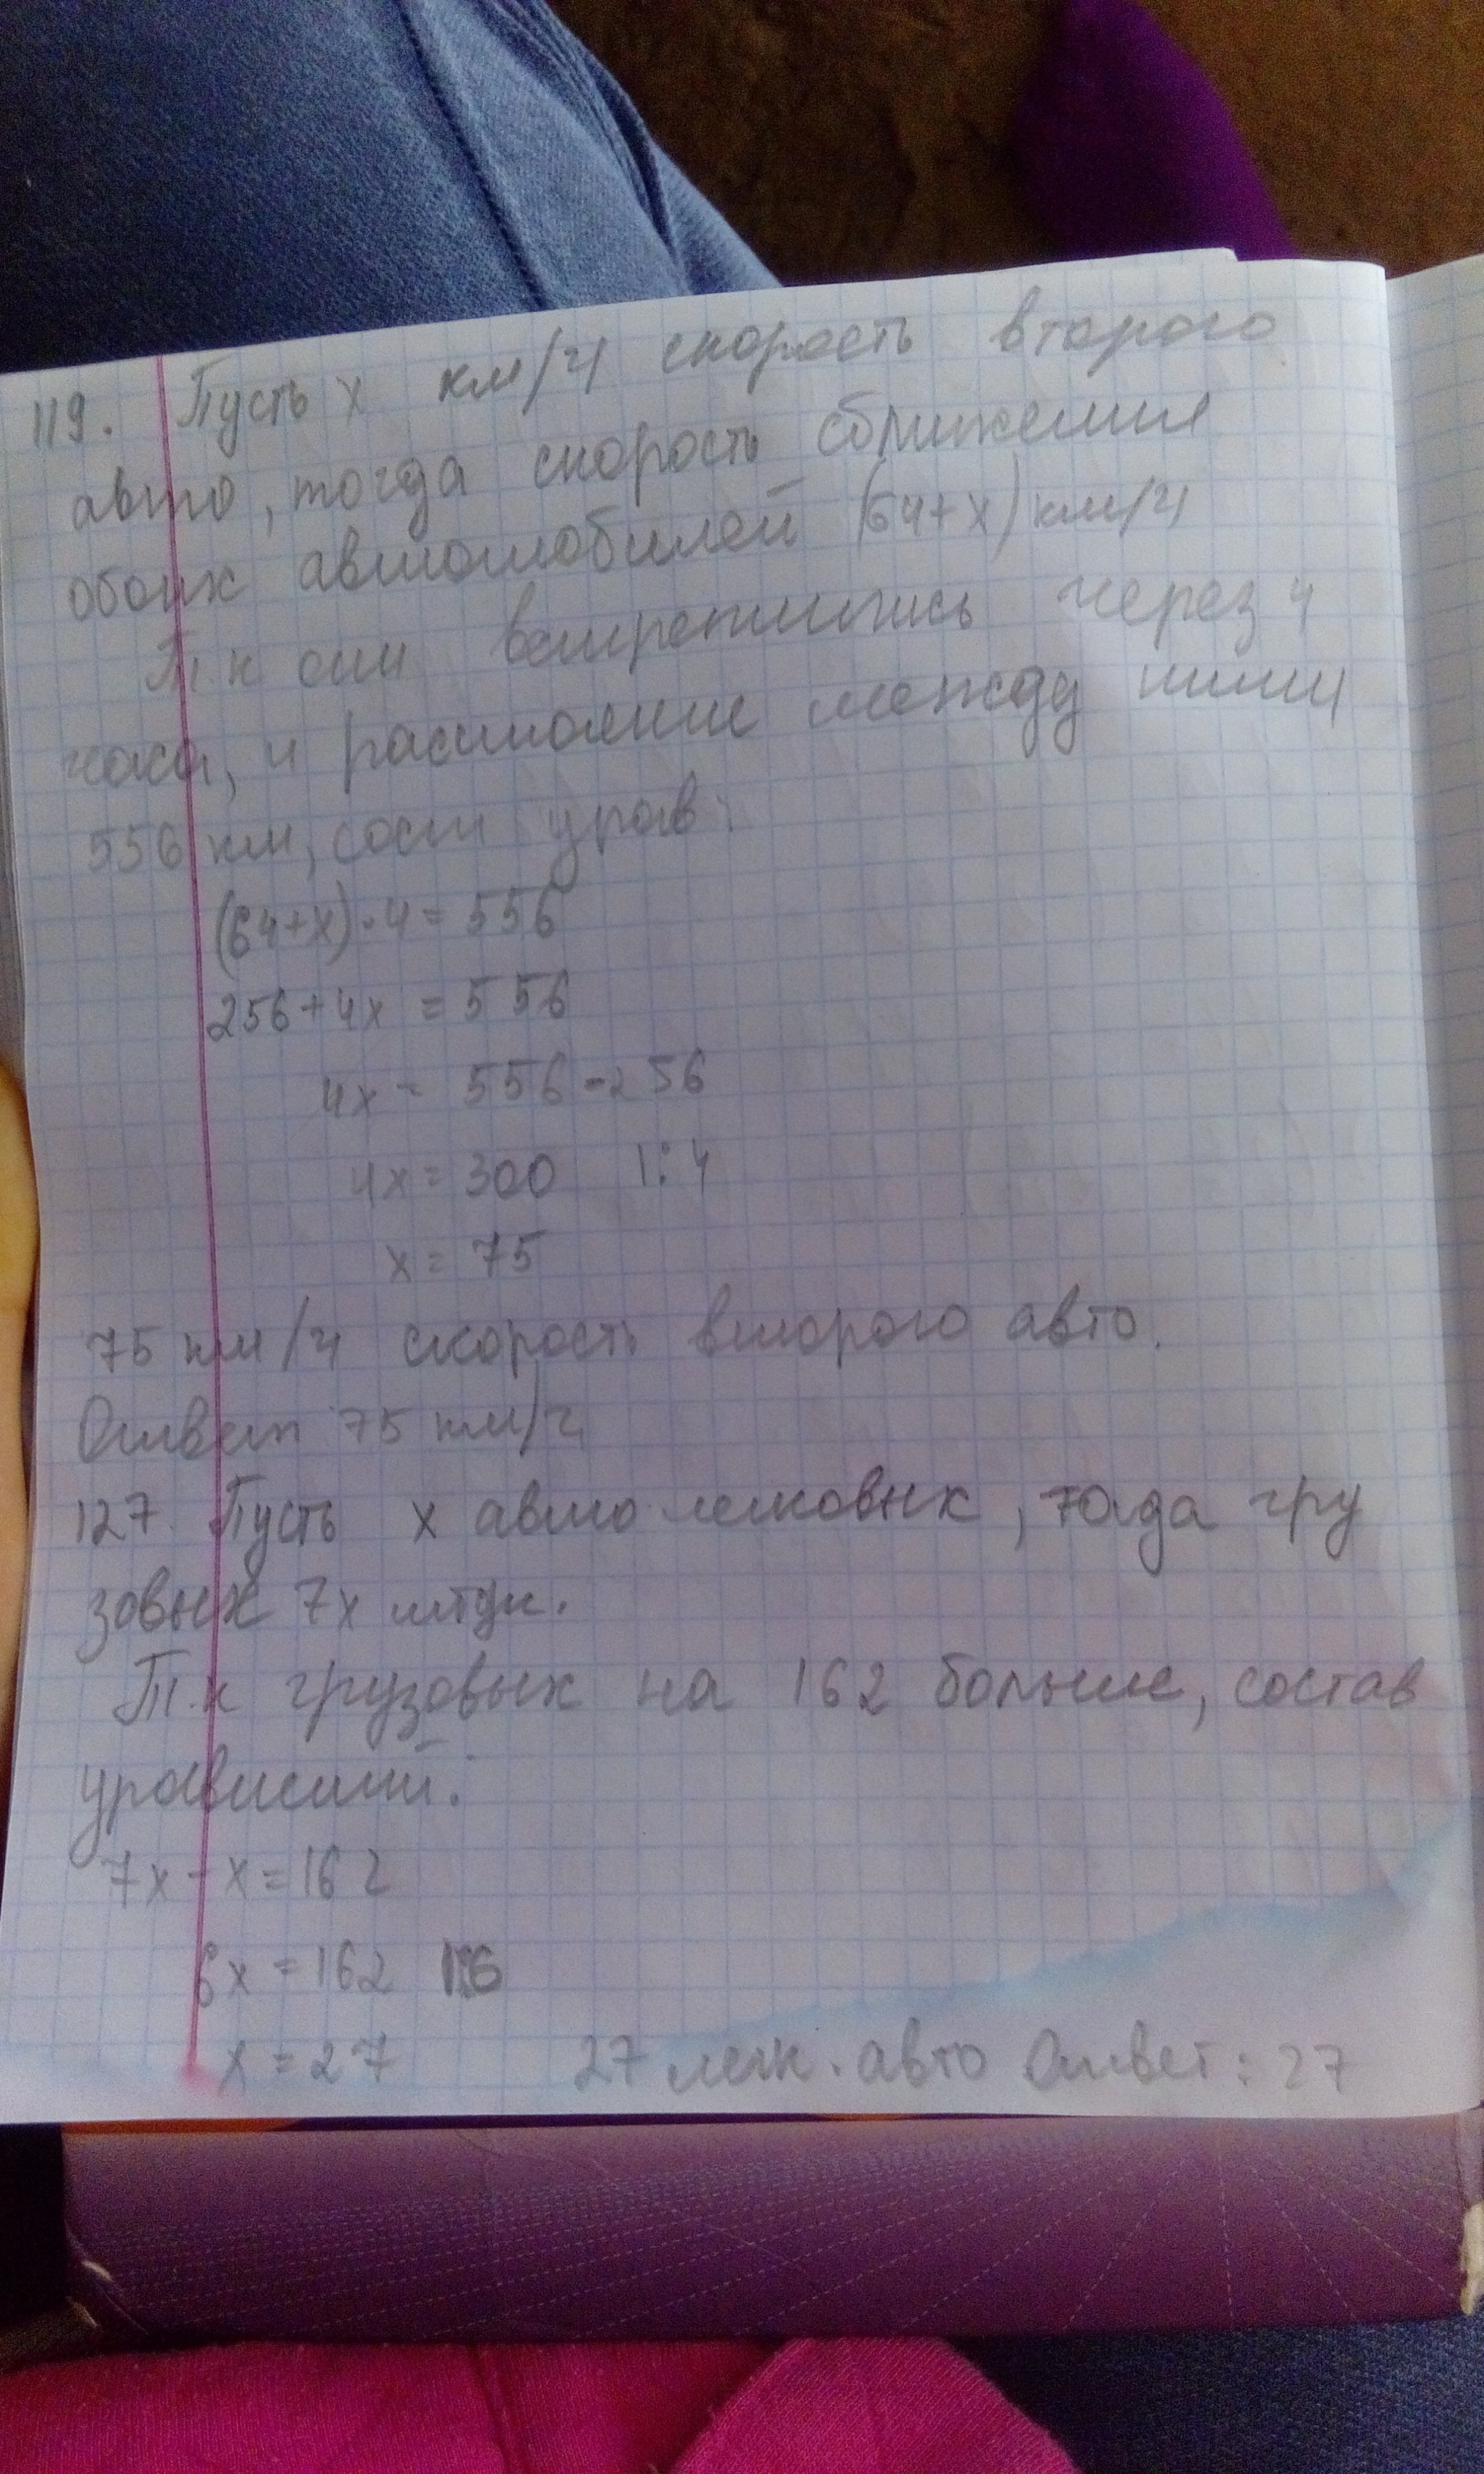 119. Пусть x км/ч скорость второго
авто, тогда скорость сближения
обоих автомобилей (64+x) км/ч
Т.к они встретились через 4
часа, и расстояние между ними
556 км, сост урав:
(64+x)·4=556
256+4x = 556
4x = 556-256
4x = 300 |:4
x = 75
75 км/ч скорость второго авто.
Ответ 75 км/ч
127. Пусть x авто легковых, тогда гру
зовых 7x штук.
Т.к грузовых на 162 больше, состав
уравнений:
7x-x=162
6x=162 |:6
x=27 27 легк. авто Ответ: 27